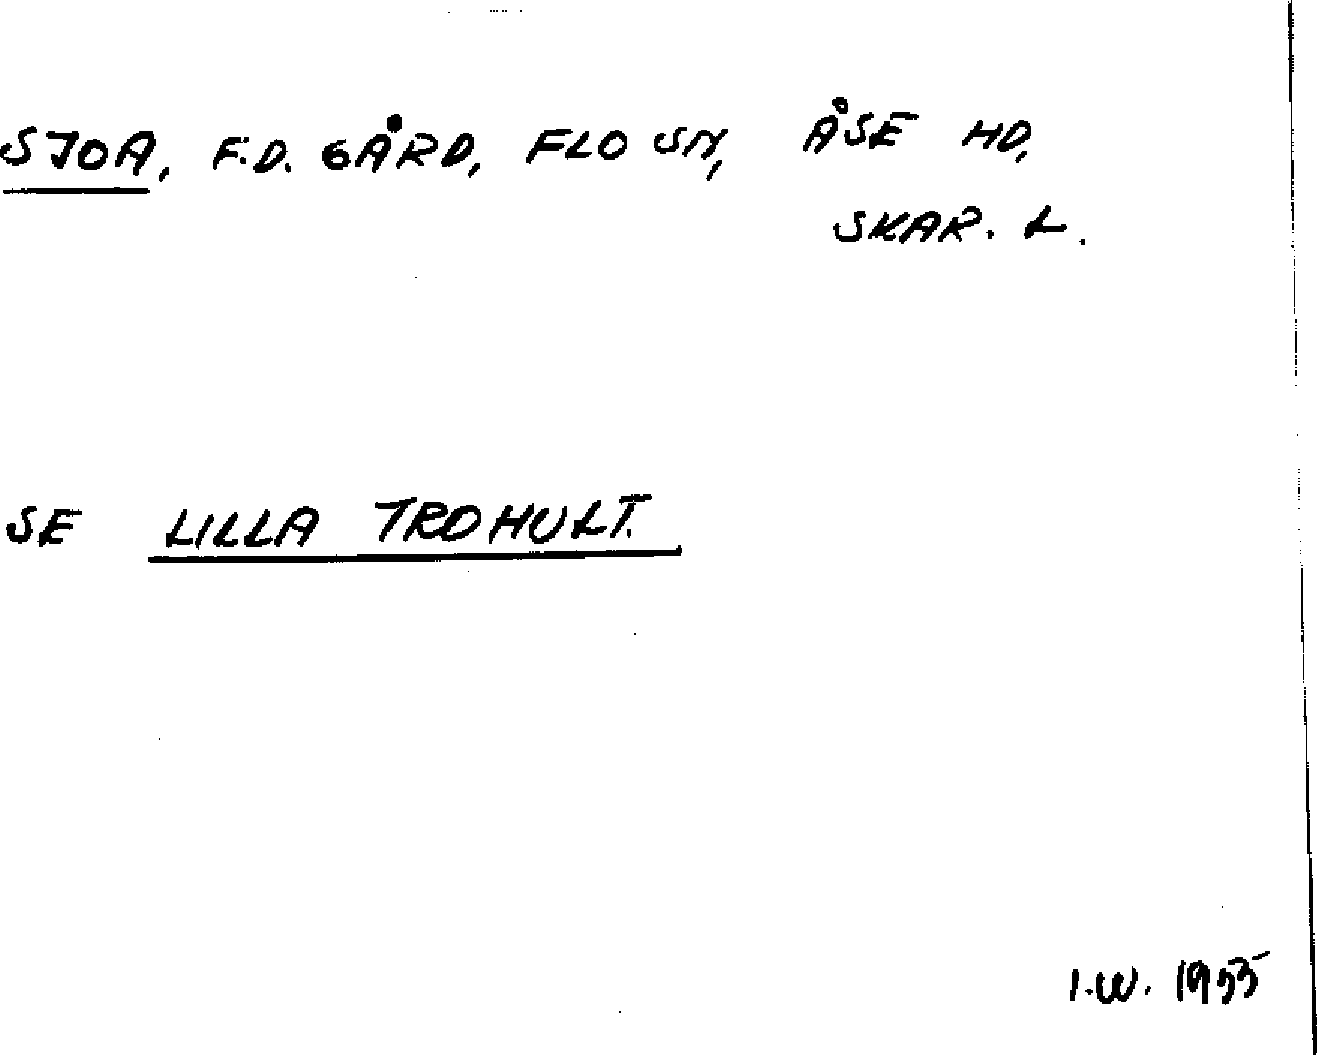 SJOA, F.D. GÅRD, FLO SN, ÅSE HD,
SKAR. L.
SE LILLA TROHULT.
I.W. 1955